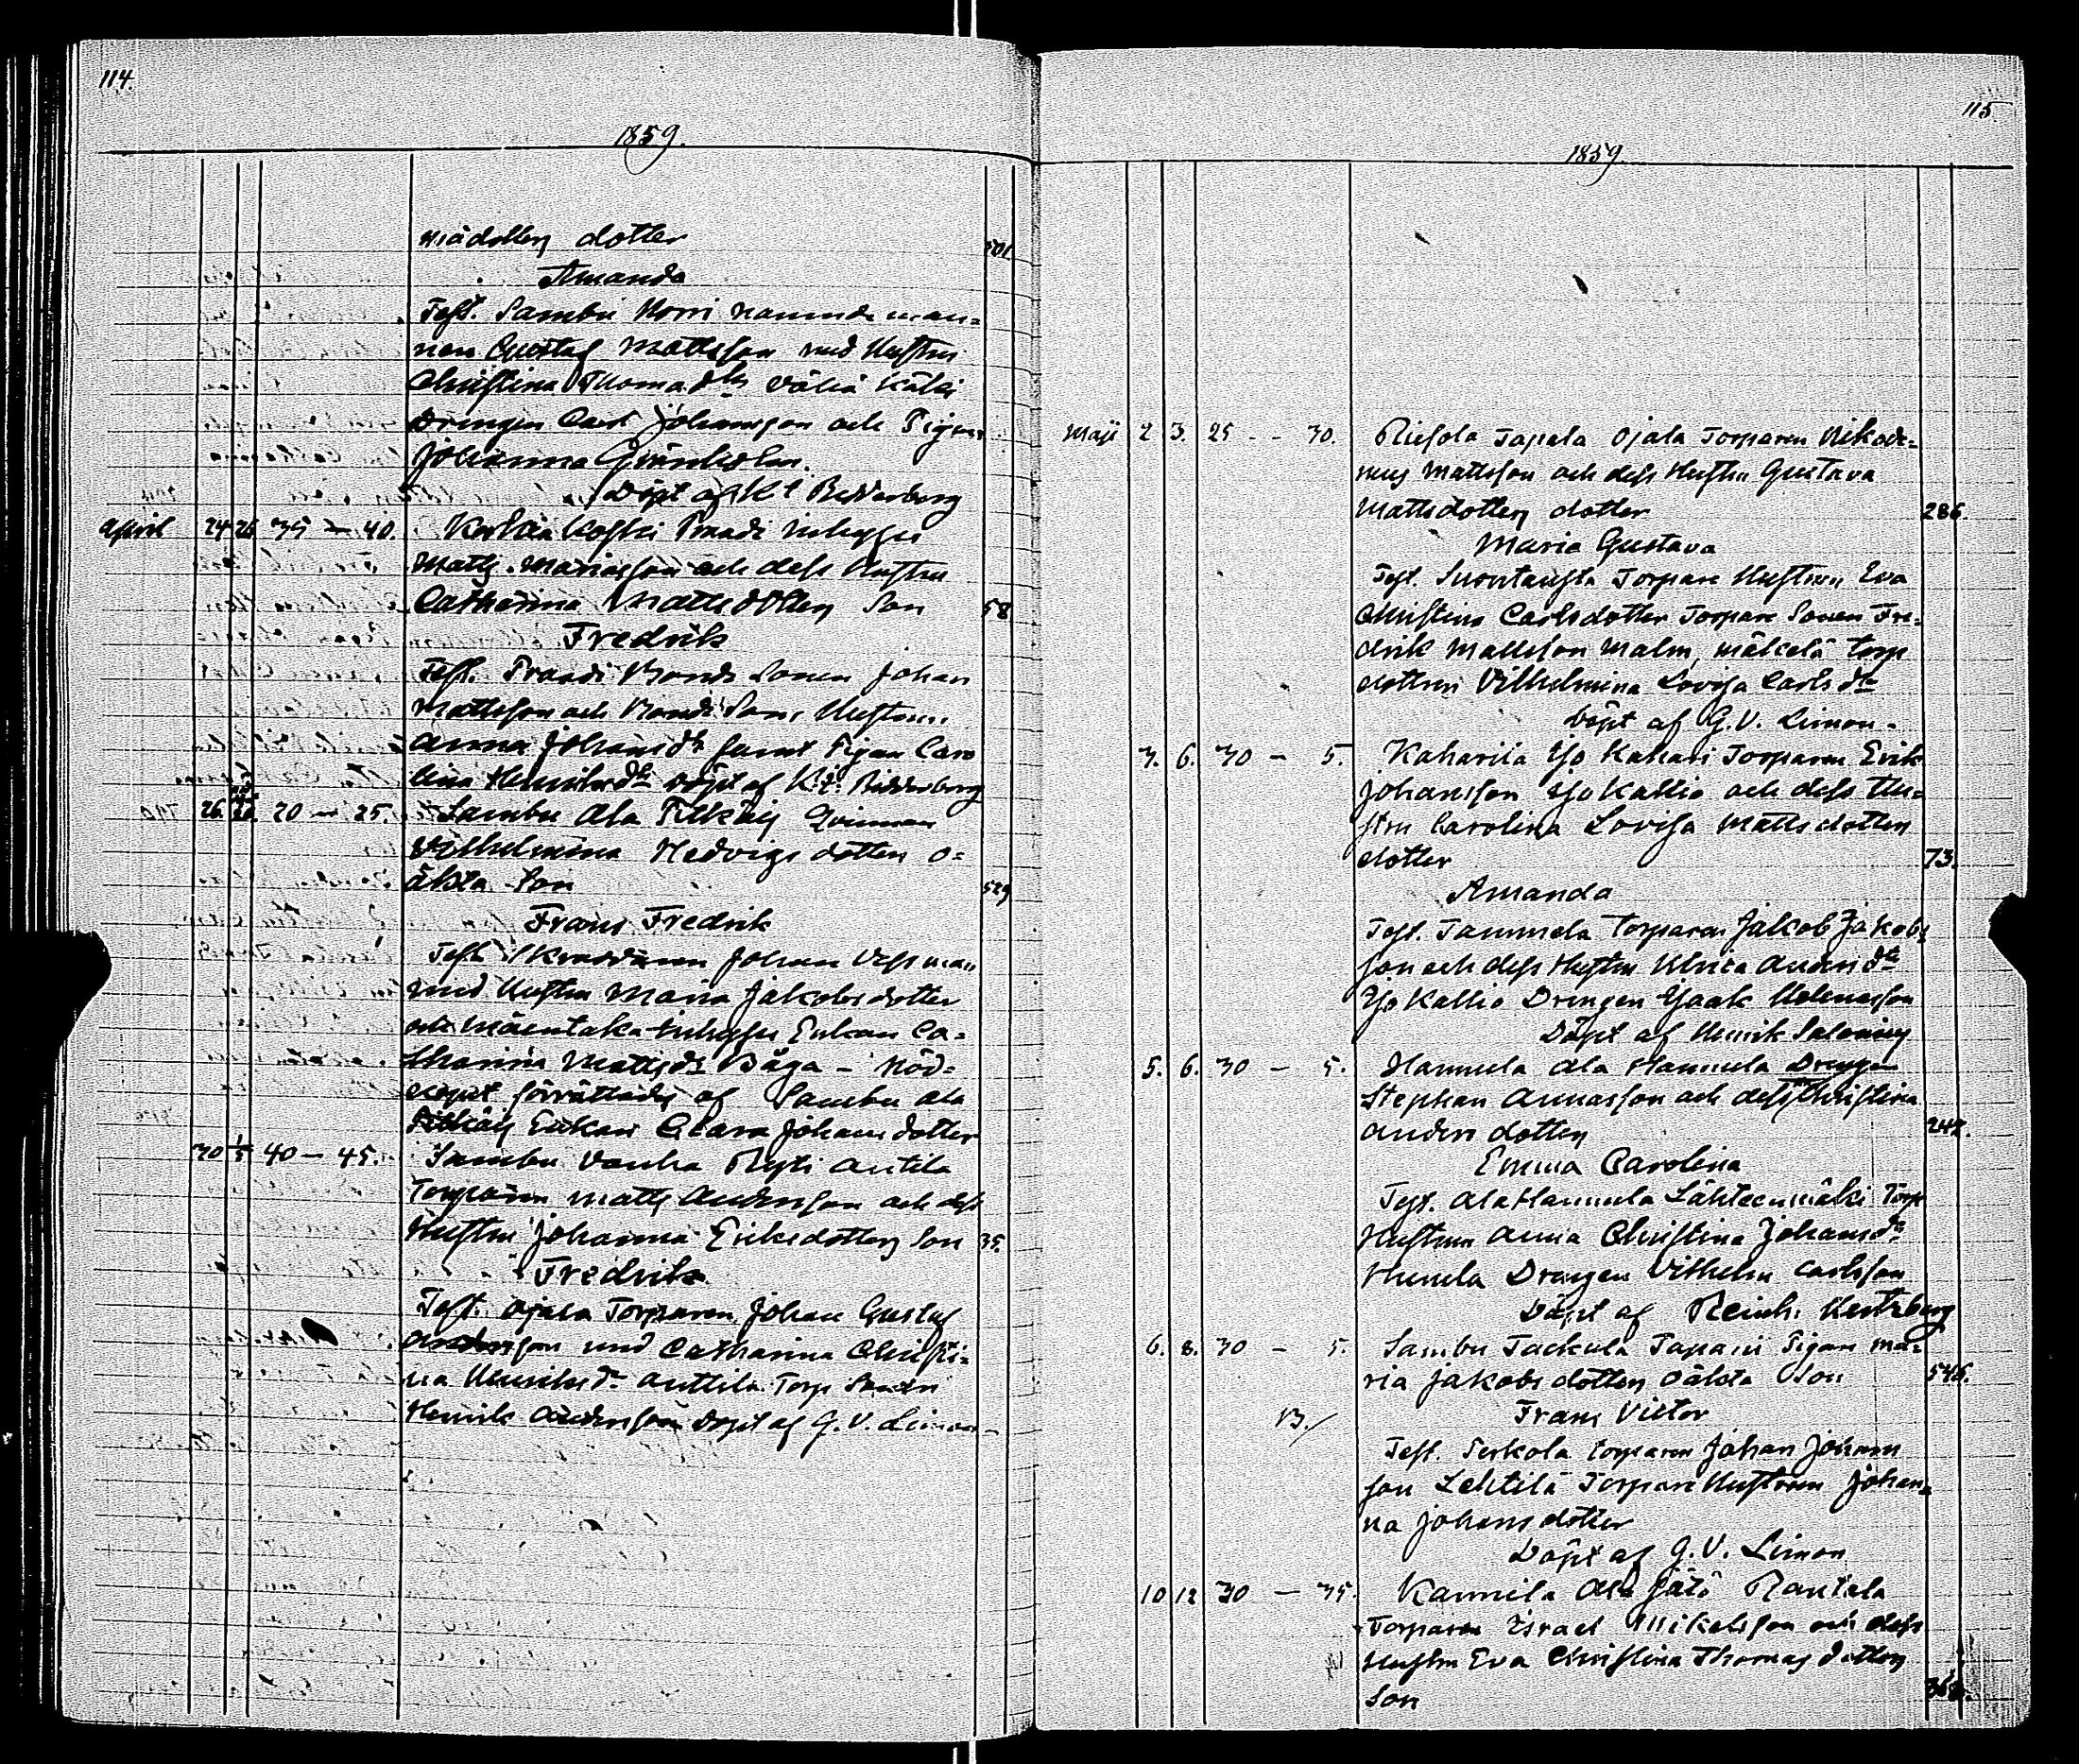 114.
1859.
dotter 501.
Amanda
Test. Sambu
nen Gustaf Mattsson med Hustru
Christina Thomadtr
Drengen Carl Johansson och Pigan
Johanna
Döpt af
April 24 26 35 – 40. Koski Inhyses
Matts Mariasson och dess Hustru
Catharina Mattsdotters Son 58
Fredrik
Test. Sonen Johan
Mattsson och Sons Hustrun
Anna Johansdtr samt Pigan Caro
lina Henriksdtr Döpt af
26. 20 – 25. Sambu Ala Pitkäis Qvinnan
Vilhelmina Hedvigsdotters o=
äkta Son 529
Frans Fredrik
Test. Johan
med Hustru Maria Jakobsdotter
och Inhyses Enkan Ca=
tharina Mattsdr – Nöd=
dopet förrättades af Sambu Ala
Pitkäis Enkan Clara Johansdotter
30 1/5 40 – 45. Sambu Vanha Ryti Antila
Torparen Matts Andersson och dess
Hustru Johanna Eriksdotters Son 35.
Fredrik
Test. Ojala Torparen Johan Gustaf
Andersson med Catharina Christi=
na Henriksdr Anttila Torp Sonen
Henrik Andersson Döpt af G. V. Limon –
115.
1859
Maji 2 3. 25 – – 30. Tapala Ojala Torparen Nikode=
mus Mattsson och dess Hustru Gustava
Mattsdotters dotter 286.
Maria Gustava
Test. Suontausta Torpare Hustrun Eva
Christina Carlsdotter Torpare Sonen Fre=
drik Mattsson Malm, Mäkelä Torp
dottren Vilhelmina Lovisa Carlsdtr
Döpt af G. V. Limon –
3. 6. 30 – 5. Kaharila Yjo Kahari Torparen Erik
Johansson Yjo Kallio och dess Hu=
stru Carolina Lovisa Mattsdotters
dotter 73.
Amanda
Test. Tammela Torparen Jakob Jakobs
son och dess Hustru Ulrica Andersdtr
Yjo Kallio Drengen Isaak Helenasson
Döpt af Henrik Salonius
5. 6. 30 – 5. Hannula Ala Hannula Drengen
Stephan Annasson och dess Christina
Andersdotters 242.
Emma Carolina
Test. Ala Hannula Lähteenmäki Torp
Hustrun Anna Christina Johansdr
Drengen Vilhelm Carlsson
Döpt af Reinh. Hertzberg
6. 8. 30 – 5. Sambu Tackula Tapani Pigan Ma=
ria Jakobsdotters oäkta Son 546.
Frans Victor
Test. Torparen Johan Johans
son Lehtilä Torpare Hustrun Johan=
na Johansdotter
Döpt af G. V. Limon
10 12 30 – 35. Kannila Ala Jätö Rantala
Torparen Israel Mikelsson och dess
Hustru Eva Christina Thomasdotters
Son